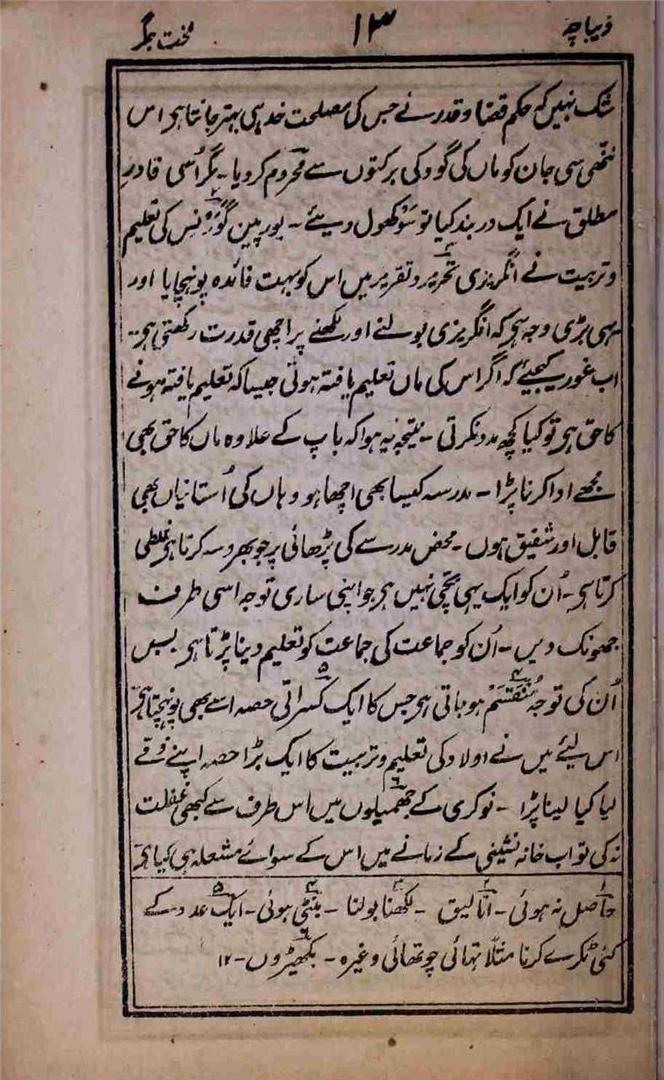 دیباچہ ۱۳ لخت جگر
شک نہیں کہ حکم قضا و قدر نے جس کی مصلحت خدا ہی بہتر جانتا ہی اس
ننھی سی جان کو ماں کی گود کی برکتوں سے محروم کر دیا۔ مگر اُسی قادرِ
مطلق نے ایک در بند کیا تو سَو کھول دیئے۔ یورپین گَوَرْنَس کی تعلیم
و تربیت نے انگریزی تحریر و تقریر میں اس کو بہت فائدہ پونہچایا اور
یہی بڑی وجہ ہی کہ انگریزی بولنے اور لکھنے پر اچھی قدرت رکھتی ہی۔
اب غور کیجیئے کہ اگر اس کی ماں تعلیم یافتہ ہوتی جیسا کہ تعلیم یافتہ ہونے
کا حق ہی تو کیا کچھ مدد نکرتی۔ نتیجہ یہ ہوا کہ باپ کے علاوہ ماں کا حق بھی
مجھے ادا کرنا پڑا۔ مدرسہ کیسا بھی اچھا ہو وہاں کی اُستانیاں بھی
قابل اور شفیق ہوں۔ محض مدرسے کی پڑھائی پر جو بھروسہ کرتا ہی غلطی
کرتا ہی۔ اُن کو ایک یہی بچی نہیں ہی جو اپنی ساری توجہ اسی طرف
جھونک دیں۔ اُن کو جماعت کی جماعت کو تعلیم دینا پڑتا ہی بس
اُن کی توجہ مُنْقَسَم ہو جاتی ہی جس کا ایک کسراتی حصہ اسے بھی پونہچتا ہی
اس لیئے میں نے اولاد کی تعلیم و تربیت کا ایک بڑا حصہ اپنے ذمّے
لیا کیا لینا پڑا۔ نوکری کے جھمیلوں میں اس طرف سے کبھی غفلت
نہ کی تو اب خانہ نشینی کے زمانے میں اس کے سوائے مشغلہ ہی کیا ہی
۱ حاصل نہ ہوئی۔ ۲ اتالیق۔ ۳ لکھنا بولنا۔ ۴ بٹی ہوئی۔ ۵ ایک عدد کے
کئی ٹکڑے کرنا مثلاً تہائی چوتھائی وغیرہ۔ ۶ بکھیڑوں۔ ۱۲